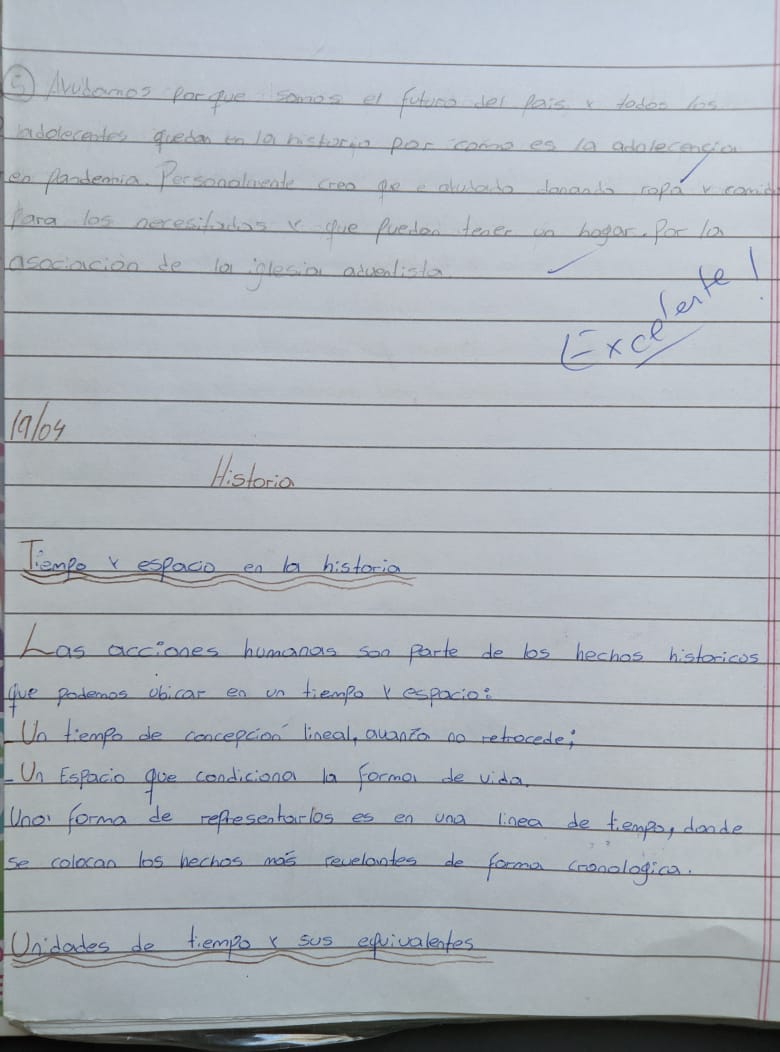 5 Ayudamos porque somos el futuro del pais y todos los
adolecentes quedan en la historia por como es la adolecencia
en Pandemia. Personalmente creo qe e ayudado donando ropa y comida
para los necesitados y que puedan tener un hogar. Por la
asociación de la iglesia adventista.
Excelente!
19/04
Historia
Tiempo y espacio en la historia
Las acciones humanas son parte de los hechos historicos
que podemos ubicar en un tiempo y espacio:
-Un tiempo de concepción lineal, avanza no retrocede;
-Un Espacio que condiciona la forma de vida.
Una forma de representarlos es en una linea de tiempo, donde
se colocan los hechos más revelantes de forma cronologica.
Unidades de tiempo y sus equivalentes